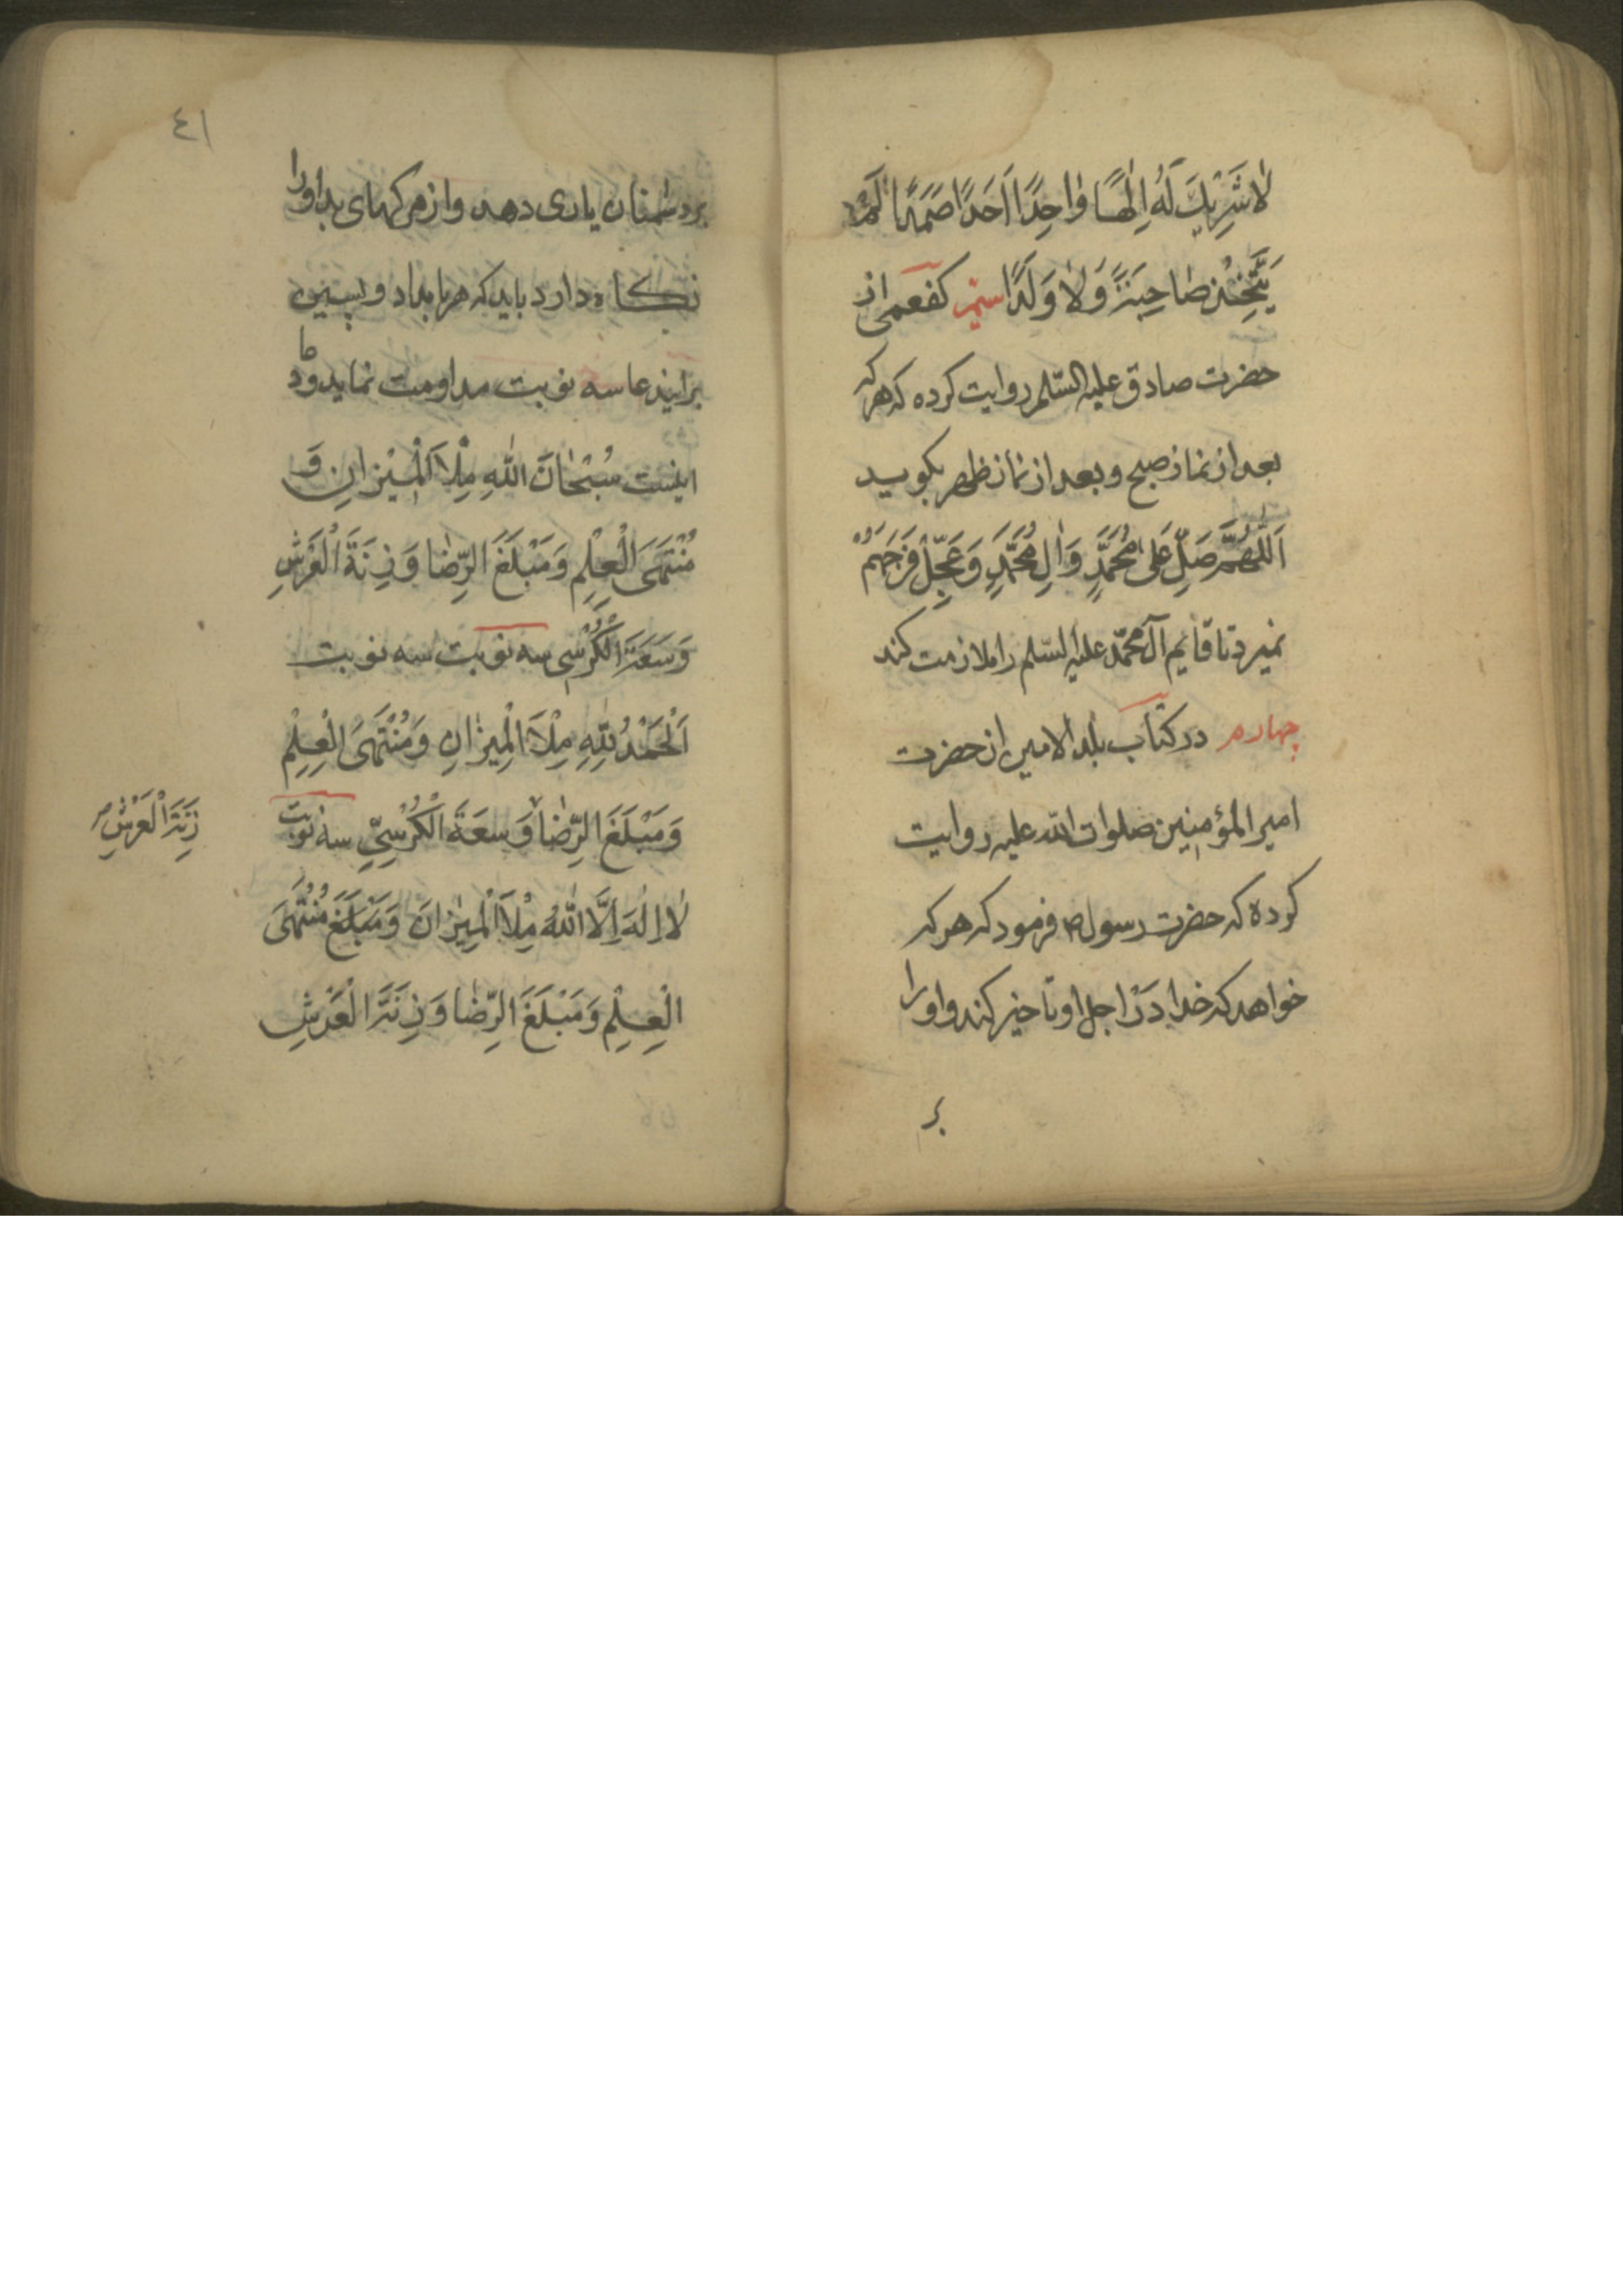 لاٰ شَرِیْكَ لَهُ اِلٰهًا وٰاحِدًا اَحَدًا صَمَدًا لَمْ
یَتَّخِذْ صٰاحِبَةً وَلاٰ وَلَدًا سیم کفعمی از
حضرت صادق علیه السّلم روایت کرده که هر که
بعد از نماز صبح و بعد از نماز ظهر بکوید
اَللّٰهُمَّ صَلِّ عَلیٰ مُحَمَّدٍ وَاٰلِ مُحَمَّدٍ وَعَجِّلْ فَرَجَهُمْ
نمیرد تا قایم آل محمّد علیه السّلم را ملازمت کند
چهارم در کتاب بلد الامین از حضرت
امیر المؤمنین صلوات الله علیه روایت
کرده که حضرت رسول ص فرمود که هر که
خواهد که خدا دَرْ اجل او تاخیر کند و او را
بر
٤١
بر دشمنان یاری دهد و از مرکهای بد او را
نکاه دارد باید که هر بامداد و پسین
بر ایندعا سه نوبت مداومت نماید و دعا
اینست سُبْحٰانَ اللّٰهِ مِلْاَ الْمِیْزانِ وَ
مُنْتَهَی الْعِلْمِ وَمَبْلَغَ الرِّضٰا وَ زِنَةَ الْعَرْشِ
وَسَعَةَ الْكُرْسّی سه نوبت سه نوبت
اَلْحَمْدُ لِلّٰهِ مِلْاَ الْمِیزٰانِ وَمُنْتَهَی الْعِلْمِ
وَمَبْلَغَ الرِّضٰا وَسِعَةَ الْكُرْسِیِّ سه نوبت
زِنَةَ الْعَرْشِ
لاٰ اِلٰهَ اِلَّا اللّٰهُ مِلْاَ الْمِیْزٰانَ وَمَبْلَغَ مُنْتَهَی
الْعِلْمِ وَمَبْلَغَ الرِّضٰا وَ زِنَةَ الْعَرْشِ